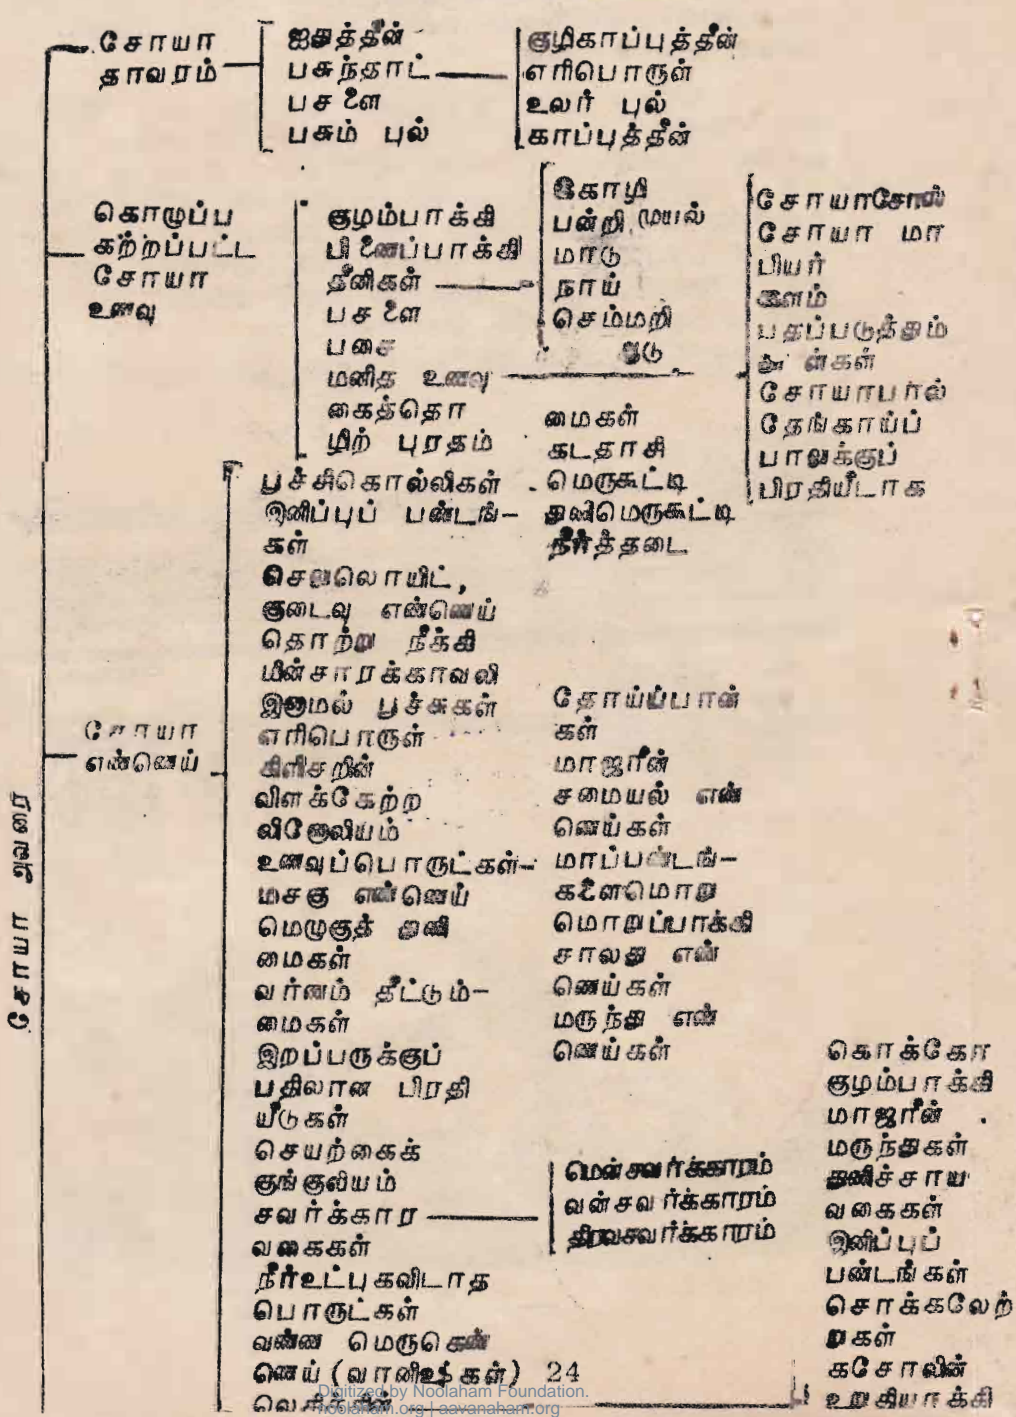 சோயா
தாவரம்
ஐதுத்தீன்
பசுந்தாட்
பசளை
பசும் புல்
குழிகாப்புத்தீன்
எரிபொருள்
உலர் புல்
காப்புத்தீன்
கொழுப்ப
கற்றப்பட்ட
சோயா
உணவு
குழம்பாக்கி
பிணைப்பாக்கி
தீனிகள்
பசளை
பசை
மனித உணவு
கைத்தொ
ழிற் புரதம்
கோழி
பன்றி, முயல்
மாடு
நாய்
செம்மறி
ஆடு
சோயாசோஸ்
சோயா மா
பியர்
பதப்படுத்தும்
சோயாபால்
தேங்காய்ப்
பாலுக்குப்
பிரதியீடாக
சோயா அவரை
சோயா
எண்ணெய்
பூச்சிகொல்லிகள்
இனிப்புப் பண்டங்-
கள்
செலுலொயிட்,
குடைவு எண்ணெய்
தொற்று நீக்கி
மின்சாரக்காவலி
இனாமல் பூச்சுகள்
எரிபொருள்
கிளிசறின்
விளக்கேற்ற
லினோலியம்
உணவுப்பொருட்கள்-
மசகு எண்ணெய்
மெழுகுத் துணி
மைகள்
வர்ணம் தீட்டும்-
மைகள்
இறப்பருக்குப்
பதிலான பிரதி
யீடுகள்
செயற்கைக்
குங்குலியம்
சவர்க்கார
வகைகள்
நீர்உட்புகவிடாத
பொருட்கள்
வண்ண மெருகெண்
ணெய் (வானிஷ்கள்)
லெசித்தின்
மைகள்
கடதாசி
மெருகூட்டி
துணிமெருகூட்டி
நீர்த்தடை
தோய்ப்பான்
கள்
மாஜரீன்
சமையல் எண்
ணெய்கள்
மாப்பண்டங்-
களைமொறு
மொறுப்பாக்கி
சாலது எண்
ணெய்கள்
மருந்து எண்
ணெய்கள்
மென்சவர்க்காரம்
வன்சவர்க்காரம்
திரவசவர்க்காரம்
கொக்கோ
குழம்பாக்கி
மாஜரீன்
மருந்துகள்
துணிச்சாய
வகைகள்
இனிப்புப்
பண்டங்கள்
சொக்கலேற்
றுகள்
கசோலின்
உறுதியாக்கி
24
Digitized by Noolaham Foundation.
noolaham.org | aavanaham.org